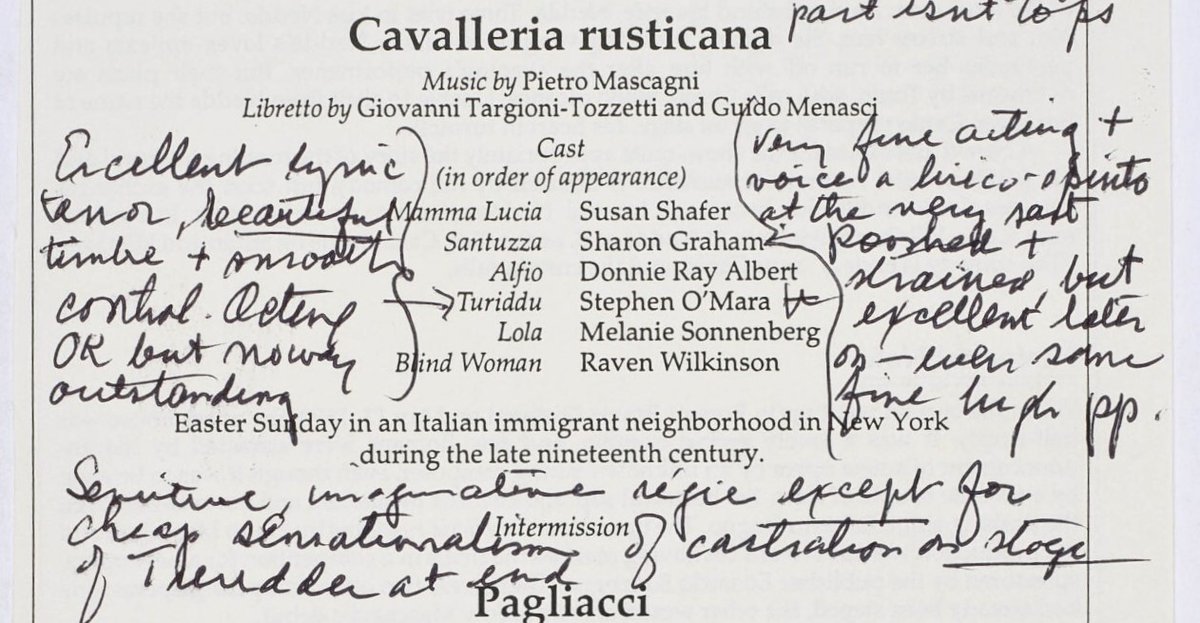 part isn't tops
Cavalleria rusticana
Music by Pietro Mascagni
Libretto by Giovanni Targioni-Tozzetti and Guido Menasci
Cast
(in order of appearance)
Mamma Lucia Susan Shafer
Santuzza Sharon Graham
Alfio Donnie Ray Albert
Turiddu Stephen O'Mara
Lola Melanie Sonnenberg
Blind Woman Raven Wilkinson
Excellent lyric
tenor, beautiful
timbre + smooth
control. Acting
OK but noway
outstanding
very fine acting +
voice a lirico-spinto
at the very
pooshed +
strained, but
excellent later
on – even some
fine high pp.
Easter Sunday in an Italian immigrant neighborhood in New York
during the late nineteenth century.
imaginative regie except for
cheap sensationalism of castration on stage
of at end
Intermission
Pagliacci